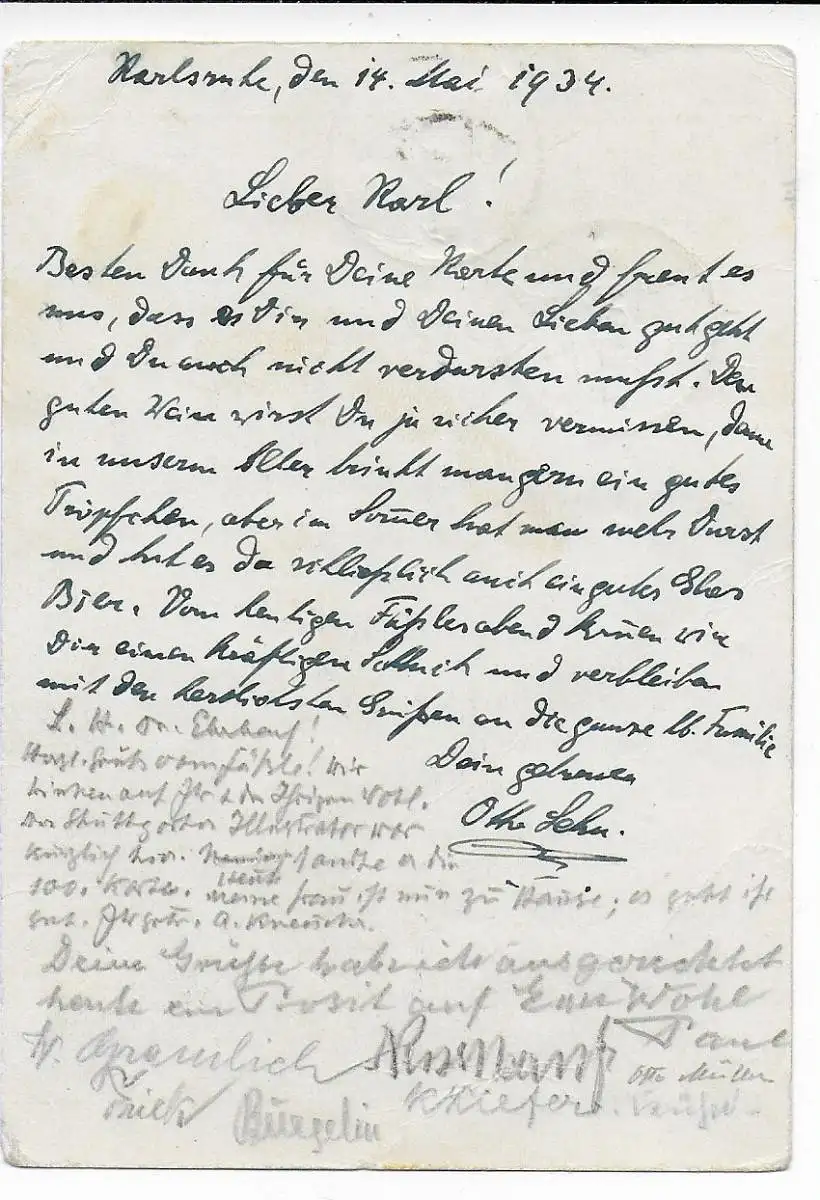 Karlsruhe, den 14. Mai 1934.
Lieber Karl!
Besten Dank für Deine Karte und freut es
uns, dass es Dir und Deinen Lieben gut geht
und Du auch nicht verdursten musst. Den
guten Wein wirst Du ja sicher vermissen, denn
in unserm Alter trinkt man gern ein gutes
Tröpfchen, aber im Somer hat man mehr Durst
und tut es da schliesslich auch ein gutes Glas
Bier. Vom heutigen Fässlesabend senden wir
Dir einen kräftigen Schluck und verbleiben
mit den herzlichsten Grüßen an die ganze lb. Familie
Dein getreuer
Otto Lehn.
L. H. Dr. Ehrhard!
Herzl. Gruß vom Fäßle! Wir
trinken auf Ihr & der Ihrigen Wohl.
Der Stuttgarter Illustrator war
kürzlich hier. sandte er die
100. Karte. Heute
meine Frau ist nun zu Hause; es geht ihr
gut. Ihr getr. A. Kneucker.
Deine Grüße hab ich ausgerichtet
heute ein Prosit auf Euer Wohl
Paul
W. Gramlich
Otto Müller
Frick Bürgelin K Kiefer.